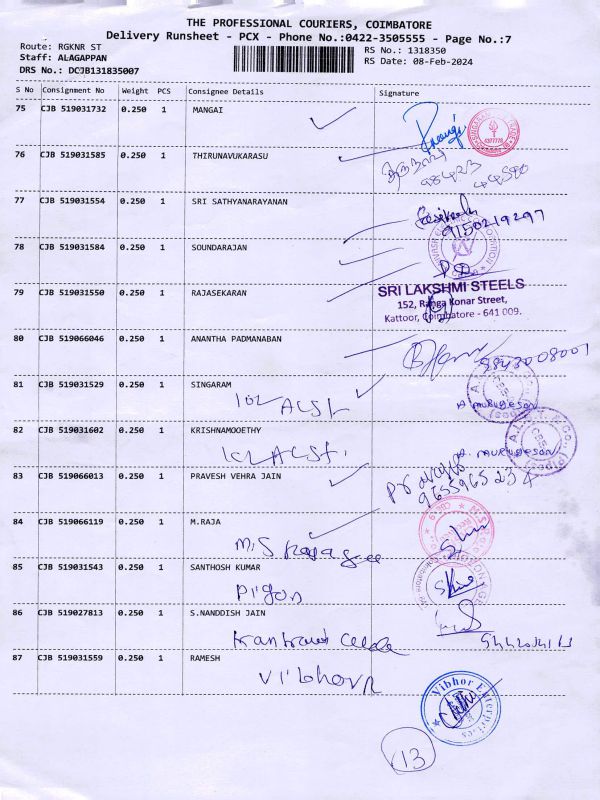 THE PROFESSIONAL COURIERS, COIMBATORE
Delivery Runsheet - PCX - Phone No.:0422-3505555 - Page No.:7
Route: RGKNR ST
Staff: ALAGAPPAN
DRS No.: DCJB131835007
RS No.: 1318350
RS Date: 08-Feb-2024
S No Consignment No Weight PCS Consignee Details Signature
75 CJB 519031732 0.250 1 MANGAI
76 CJB 519031585 0.250 1 THIRUNAVUKARASU
98423
44580
77 CJB 519031554 0.250 1 SRI SATHYANARAYANAN
9150219297
78 CJB 519031584 0.250 1 SOUNDARAJAN
79 CJB 519031550 0.250 1 RAJASEKARAN
SRI LAKSHMI STEELS
152, Ranga Konar Street,
Kattoor, Coimbatore - 641 009.
80 CJB 519066046 0.250 1 ANANTHA PADMANABAN
9843008001
81 CJB 519031529 0.250 1 SINGARAM
A. MURUGESON
82 CJB 519031602 0.250 1 KRISHNAMOOETHY
A. MURUGESON
83 CJB 519066013 0.250 1 PRAVESH VEHRA JAIN
9655965234
84 CJB 519066119 0.250 1 M.RAJA
M.S
85 CJB 519031543 0.250 1 SANTHOSH KUMAR
86 CJB 519027813 0.250 1 S.NANDDISH JAIN
87 CJB 519031559 0.250 1 RAMESH
Vibhor
Vibhor Enterprises
13